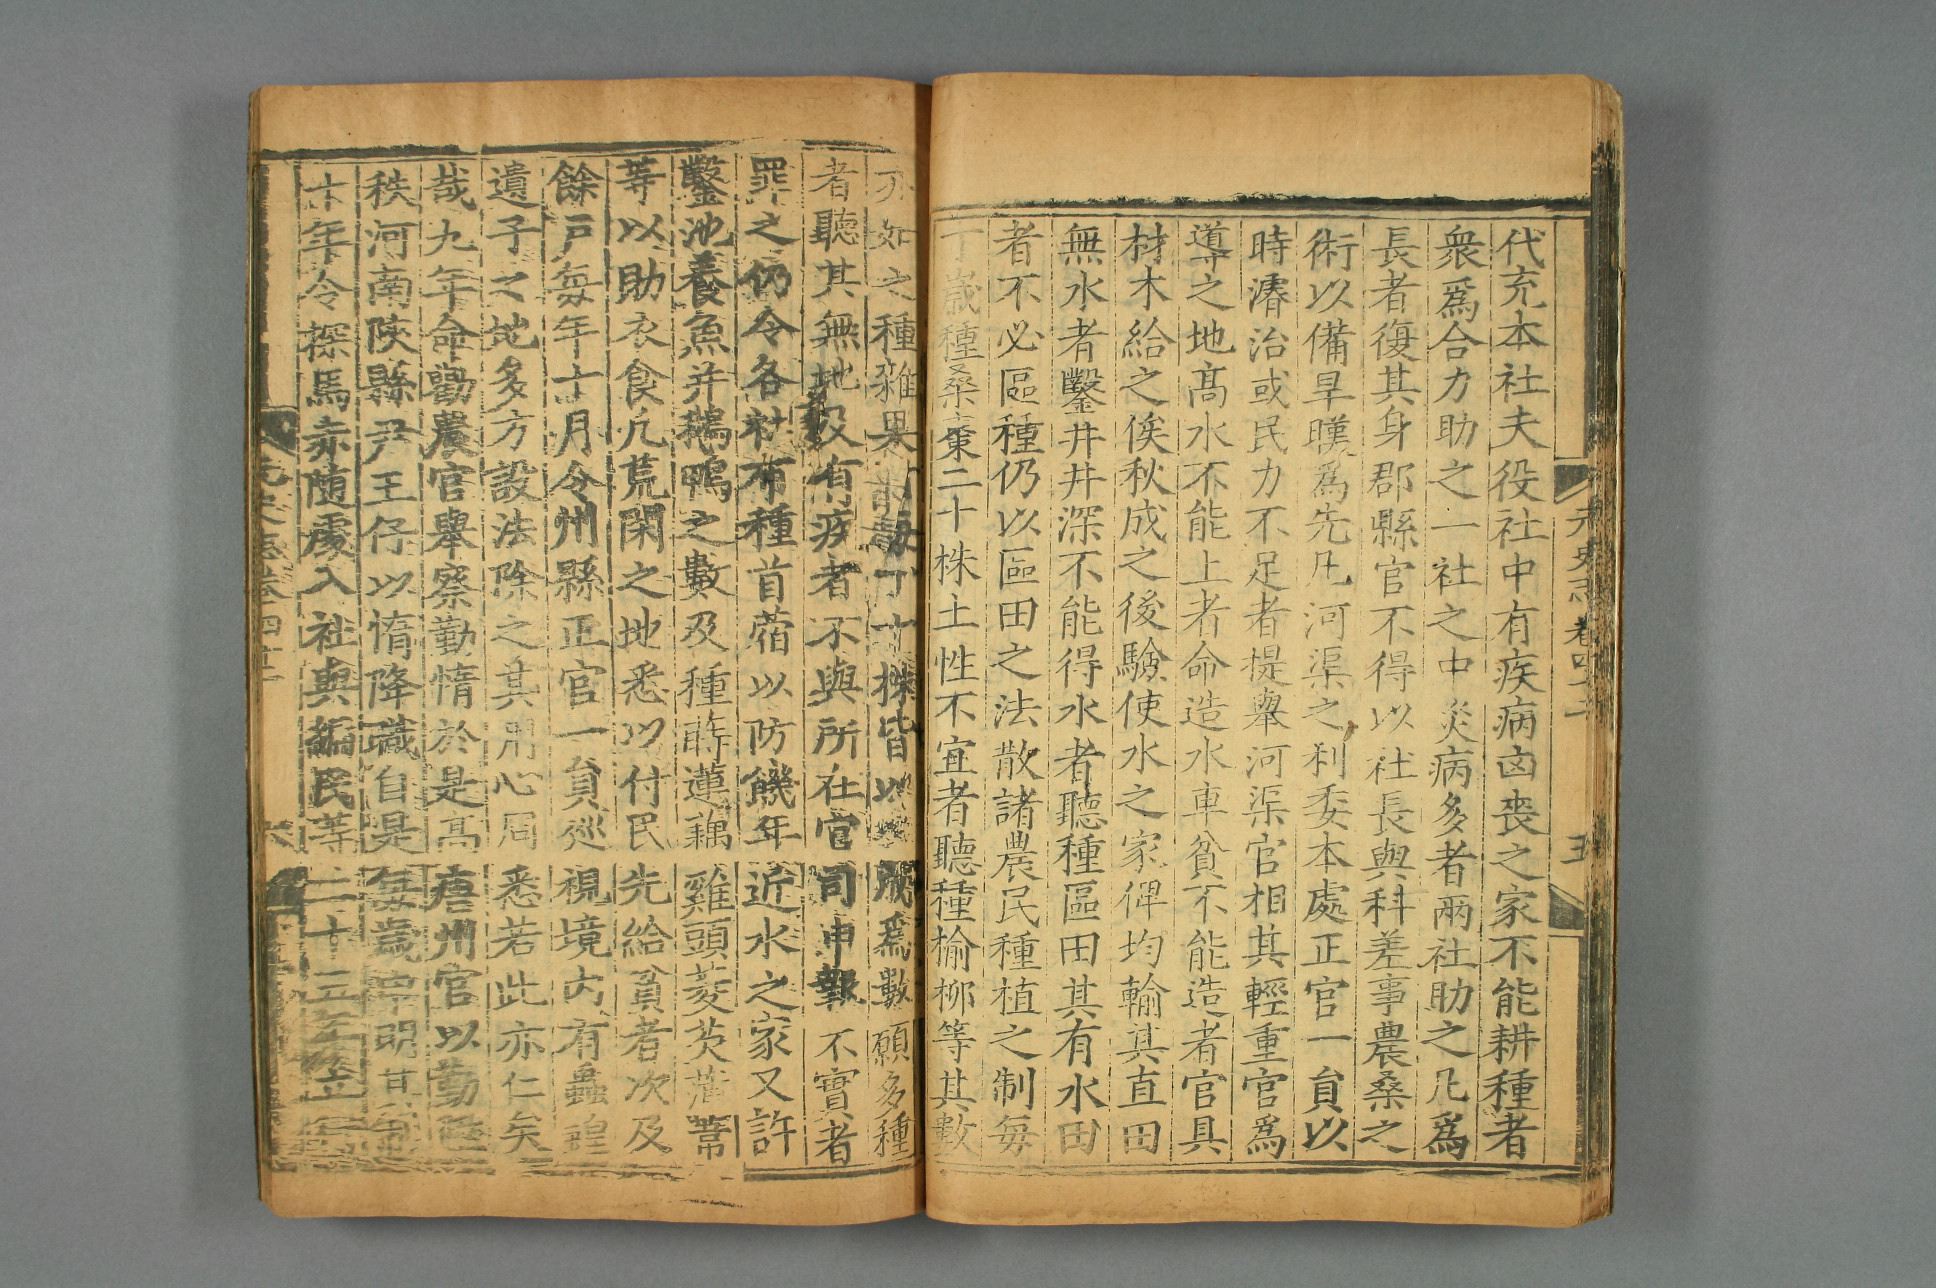 元史志卷四十二
五
代充本社夫役社中有疾病凶喪之家不能耕種者
衆爲合力助之一社之中災病多者兩社助之凡爲
長者復其身郡縣官不得以社長與科差事農桑之
術以備旱暵爲先凡河渠之利委本處正官一員以
時濬治或民力不足者提舉河渠官相其輕重官爲
導之地高水不能上者命造水車貧不能造者官具
材木給之俟秋成之後驗使水之家俾均輸其直田
無水者鑿井井深不能得水者聽種區田其有水田
者不必區種仍以區田之法散諸農民種植之制每
丁歲種桑棗二十株土性不宜者聽種榆柳等其數
亦如之種雜果者每丁十株皆以生成爲數願多種
者聽其無地及有疾者不與所在官司申報不實者
罪之仍令各社布種苜蓿以防饑年近水之家又許
鑿池養魚并鵝鴨之數及種蒔蓮藕雞頭菱芡蒲葦
等以助衣食凡荒閑之地悉以付民先給貧者次及
餘戶每年十月令州縣正官一員巡視境內有蟲蝗
遺子之地多方設法除之其用心周悉若此亦仁矣
哉九年命勸農官舉察勤惰於是高唐州官以勤陞
秩河南陝縣尹王仔以惰降職自是每歲申明其制
十年令探馬赤隨處入社與編民等二十三年
元史志卷四十二
六